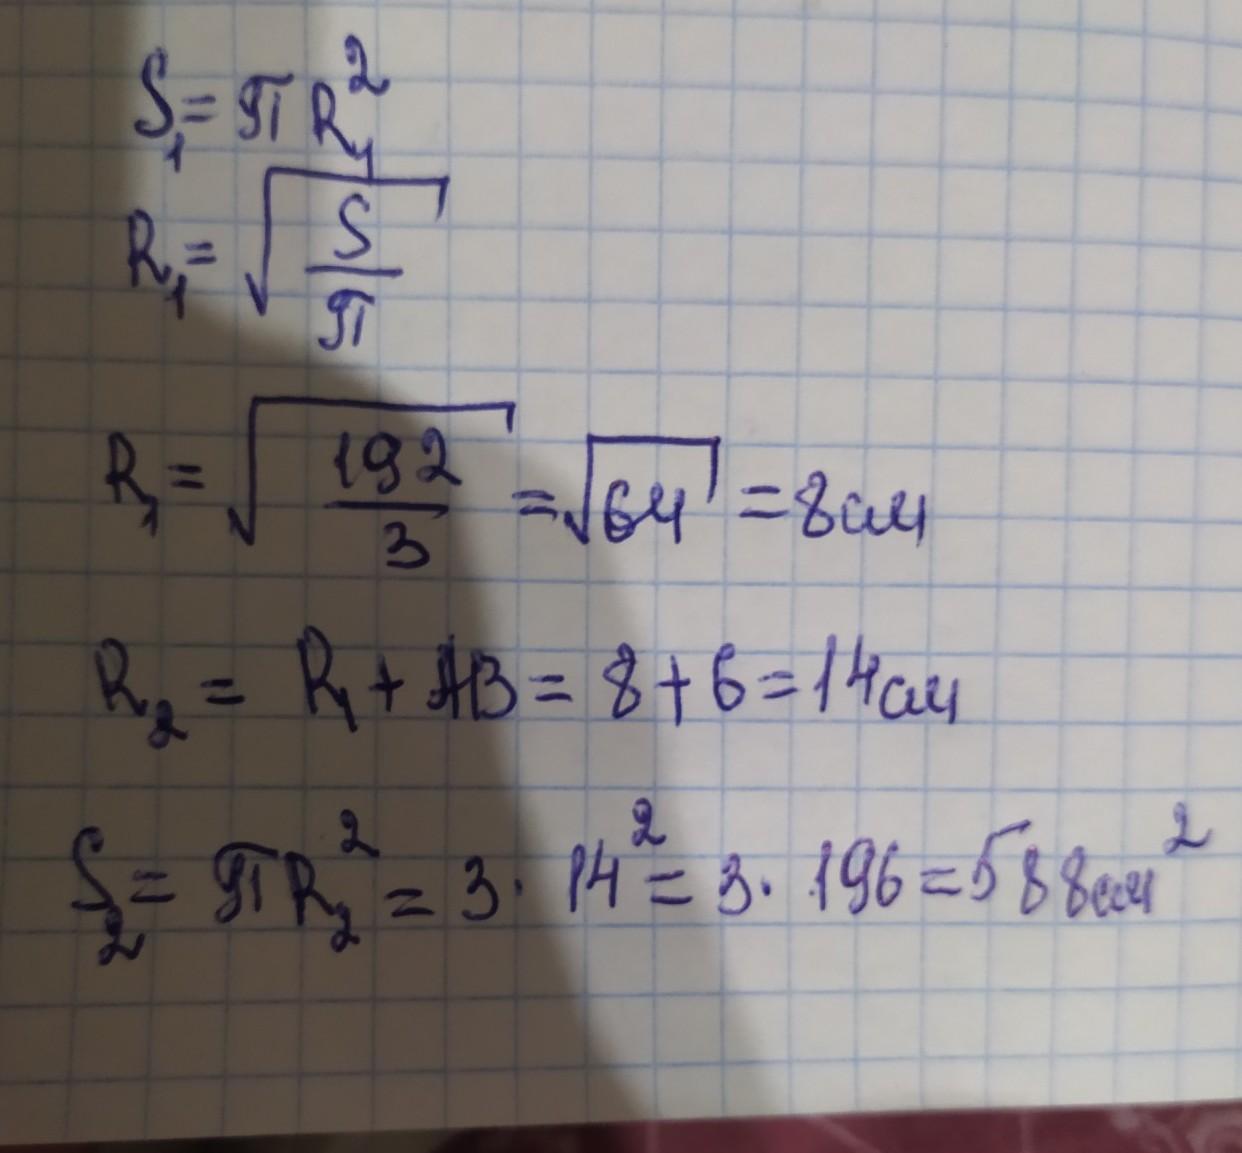 S₁ = π R₁²
R₁ = √(S/π)
R₁ = √(192/3) = √64 = 8см
R₂ = R₁ + AB = 8 + 6 = 14см
S₂ = π R₂² = 3 · 14² = 3 · 196 = 588см²